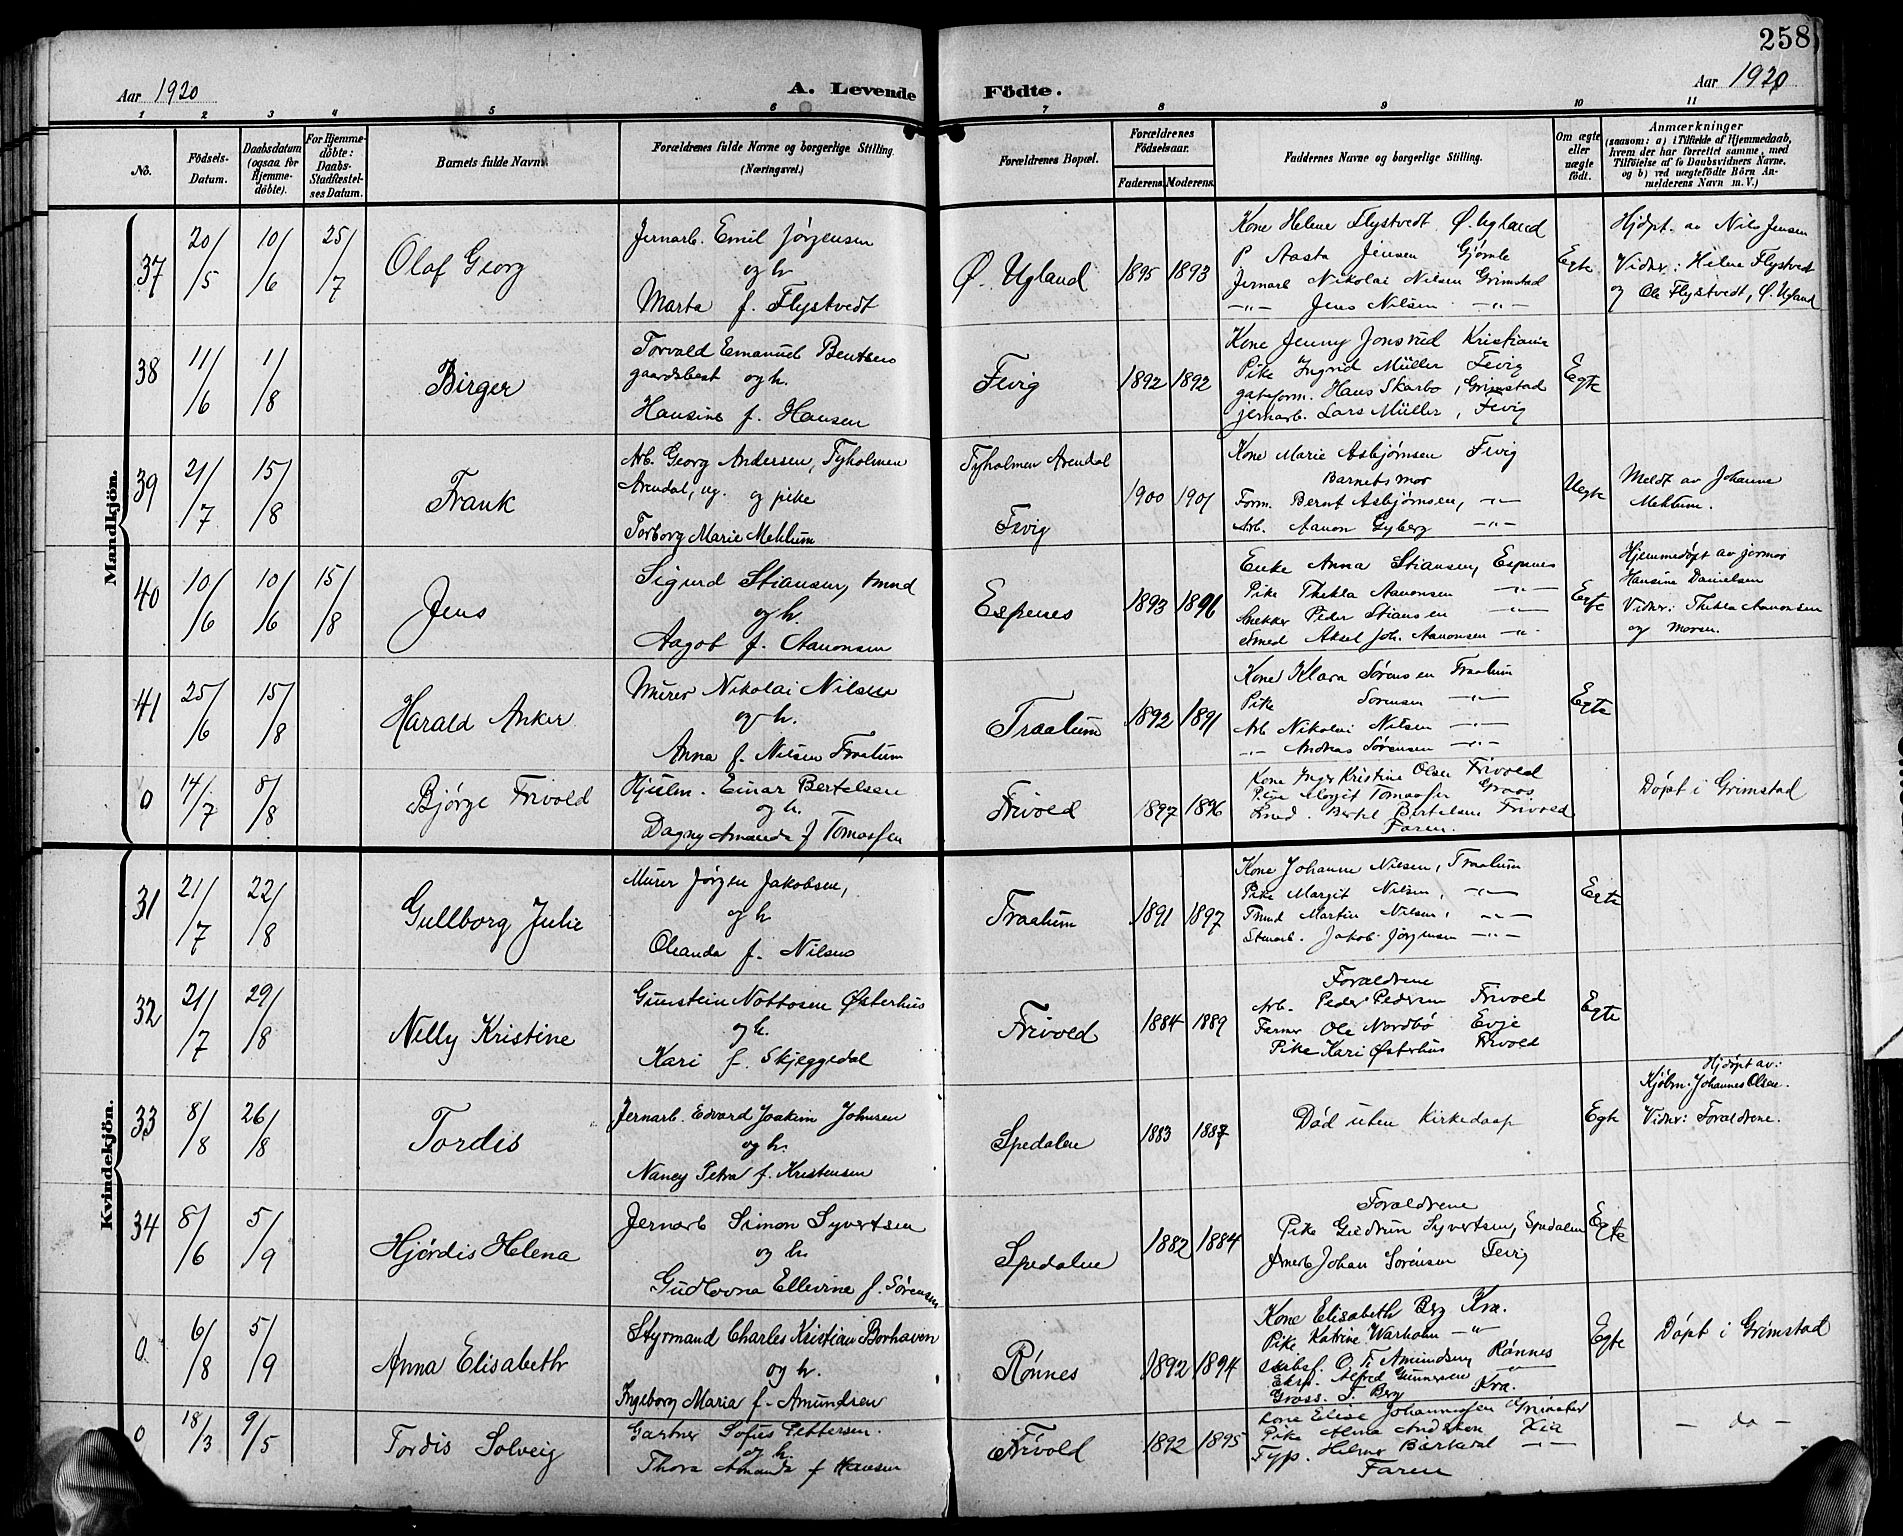 258
Aar 1920
A. Levende Födte.
Aar 1920
1 2 3 4 5 6 7 8 9 10 11
No.
Födsels-Datum.
Daabsdatum (ogsaa for Hjemme-döbte).
For Hjemme-döbte: Daabs-Stadfæstelses Datum.
Barnets fulde Navn.
Forældrenes fulde Navne og borgerlige Stilling. (Næringsvei.)
Forældrenes Bopæl.
Forældrenes Födselsaar.
Faderens. Moderens.
Faddernes Navne og borgerlige Stilling.
Om ægte eller uægte födt.
Anmærkninger
(saasom: a) i Tilfælde af Hjemmedaab, hvem der har forrettet samme, med Tilföielse af to Daabsvidners Navne. og b) ved uægtefödte Börn Anmelderens Navn m. V.)
Mandkjön.
37 20/5 10/6 25/7 Olaf Georg
Jernarb. Emil Jørgensen
og h.
Marta f. Flystvedt
Ø. Ugland 1895 1893
Kone Helene Flystvedt Ø. Ugland
P. Aasta Jensen Gjømle
Jernarb Nikolai Nilsen Grimstad
—"— Jens Nilsen —"—
Egte
Hjdøpt. av Nils Jensen
Vidner: Helene Flystvedt
og Ole Flystvedt, Ø. Ugland
38 11/6 1/8 Birger
Torvald Emanuel Bentsen
gaardsbest og h.
Hansine f. Hansen
Fevig 1892 1892
Kone Jenny Jonsrud Kristiania
Pike Ingrid Müller Fevig
gateform. Hans Skarbo, Grimstad
jernarb. Lars Müller, Fevig
Egte
39 21/7 15/8 Frank
Arb. Georg Andersen, Tyholmen
Arendal, ug. og pike
Torborg Marie Mehlum
Tyholmen Arendal
Fevig
1900 1901
Kone Marie Asbjørnsen Fevig
Barnets mor
Form. Bernt Asbjørnsen, —"—
Arb. Aanon Gyberg —"—
Uegte
Meldt av Johanne
Mehlum.
40 10/6 10/6 15/8 Jens
Sigurd Stiansen, tmnd
og h.
Aagot f. Aanonsen
Espenes 1893 1896
Enke Anna Stiansen, Espnes
Pike Thekla Aanonsen —"—
Snekker Peder Stiansen —"—
Smed Aksel Joh. Aanonsen —"—
Egte
Hjemmedøpt av jormor
Hansine Danielsen
Vidner: Thekla Aanonsen
og Morsen.
41 25/6 15/8 Harald Anker
Murer Nikolai Nilsen
og h.
Anna f. Nilsen Fraalum
Traalum 1892 1891
Kone Klara Sørensen Traalum
Pike Sørensen —"—
Arb Nikolai Nilsen —"—
—"— Andreas Sørensen —"—
Egte
0 14/7 8/8 Bjørge Frivold
Hjulm. Einar Bertelsen
og h.
Dagny Amanda f Tomassen
Frivold 1897 1896
Kone Inger Kristine Olsen Frivold
Pike Margit Tomassen Groos
Smed. Bertel Bertelsen Frivold
Faren.
Døpt i Grimstad
Kvindekjön.
31 21/7 22/8 Gullborg Julie
Murer Jørgen Jakobsen,
og h
Oleanda f. Nilsen
Traalum 1891 1897
Kone Johanne Nilsen, Traalum
Pike Margit Nilsen, —"—
Tmnd Martin Nilsen, —"—
Stenarb. Jakob Jørgensen —"—
Egte
32 21/7 29/8 Nelly Kristine
Gunstein Nottosen Østerhus
og h.
Kari f. Skjeggedal
Frivold 1884 1889
Foraldrene
Arb. Peder Pedersen Frivold
Farmer Ole Nordbø Evje
Pike Kari Østerhus Frivold
Egte
33 8/8 26/8 Tordis
Jernarb. Edvard Joakim Johnsen
og h.
Nancy Petra f. Kristensen
Spedalen 1883 1887
Død uten Kirkedaap
Egte
Hjdøpt av:
Kjøbm. Johannes Olsen.
Vidner: Foraldrene.
34 8/6 5/9 Hjørdis Helena
Jernarb Simon Syvertsen
og h.
Gudlovna Ellevine f. Sørensen
Spedalen 1882 1884
Foraldrene
Pike Gudrun Syvertsen, Spedalen
Jernarb Johan Sørensen Fevig
Egte
0 6/8 5/9 Anna Elisabeth
Styrmand Charles Kristian Borhaven
og h.
Ingeborg Maria f. Amundsen
Rønnes 1892 1894
Kone Elisabeth Berg Kra.
Pike Katrine Warholm —"—
Skibsf. O. T. Amundsen, Rønnes
Eksp. Alfred Gunnersen "
Gross. T. Berg Kra.
Egte
Døpt i Grimstad
0 18/3 9/5 Tordis Solveig
Gartner Sofus Pettersen.
og h
Thora Amanda f Hansen
Frivold 1892 1895
Kone Elise Johannesen Grimstad
Pike Alma Andersen Kra
Typ. Hilmer Barkedal —"—
Faren
— do —